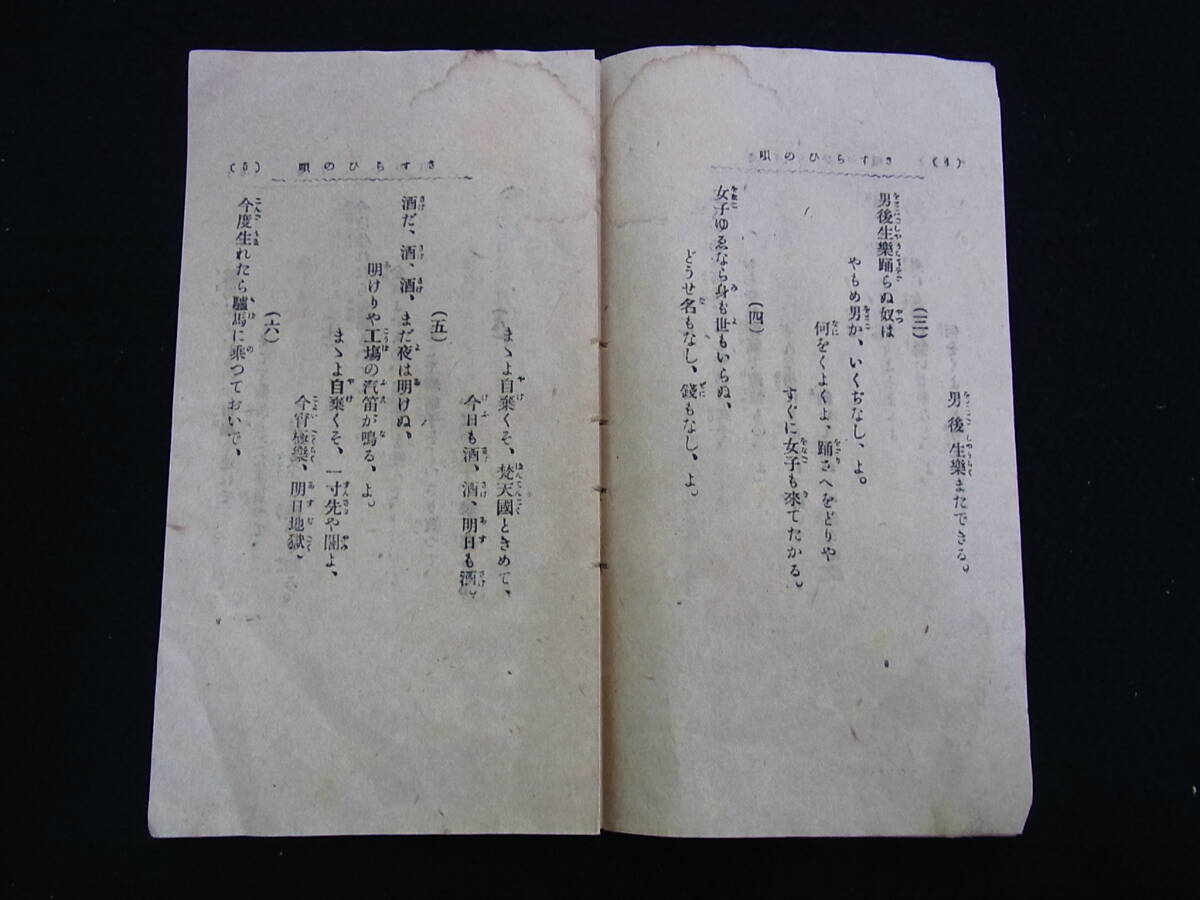 さすらひの唄
(4)
男後生樂またできる。
(三)
男後生樂踊らぬ奴は
やもめ男か、いくぢなし、よ。
何をくよくよ、踊さへをどりや
すぐに女子も來てたかる。
(四)
女子ゆゑなら身も世もいらぬ、
どうせ名もなし、錢もなし、よ。
さすらひの唄
(5)
まゝよ自棄くそ、梵天國ときめて、
今日も酒、酒、明日も酒。
(五)
酒だ、酒、酒、まだ夜は明けぬ、
明けりや工場の汽笛が鳴る、よ。
まゝよ自棄くそ、一寸先や闇よ、
今宵極樂、明日地獄。
(六)
今度生れたら驢馬に乘つておいで、